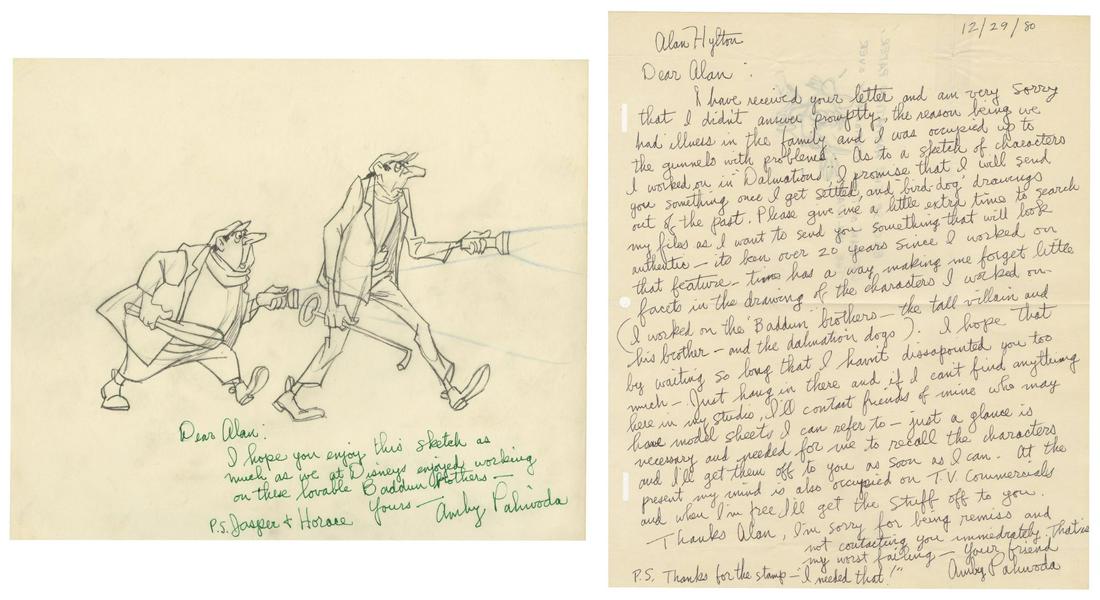 Dear Alan:
I hope you enjoy this sketch as
much as we at Disneys enjoyed working
on these lovable Baddun Brothers —
Yours — Amby Paliwoda
P.S. Jasper + Horace
12/29/80
Alan Hylton
Dear Alan:
I have received your letter and am very sorry
that I didn't answer promptly, the reason being we
had illness in the family and I was occupied up to
the gunnels with problems. As to a sketch of characters
I worked on in "Dalmations", I promise that I will send
you something once I get settled, and "bird-dog" drawings
out of the past. Please give me a little extra time to search
my files as I want to send you something that will look
authentic — its been over 20 years since I worked on
that feature — time has a way making me forget little
facets in the drawing of the characters I worked on.
(I worked on the "Baddun" brothers — the tall villain and
his brother — and the dalmation dogs). I hope that
by waiting so long that I havn't dissapointed you too
much — Just hang in there and if I can't find anything
here in my studio, I'll contact friends of mine who may
have model sheets I can refer to — just a glance is
necessary and needed for me to recall the characters
and I'll get them off to you as soon as I can. At the
present my mind is also occupied on T.V. Commercials
and when I'm free I'll get the stuff off to you.
Thanks Alan, I'm sorry for being remiss and
not contacting you immediately. That is
my worst failing — Your friend
Amby Paliwoda
P.S. Thanks for the stamp — "I needed that!"